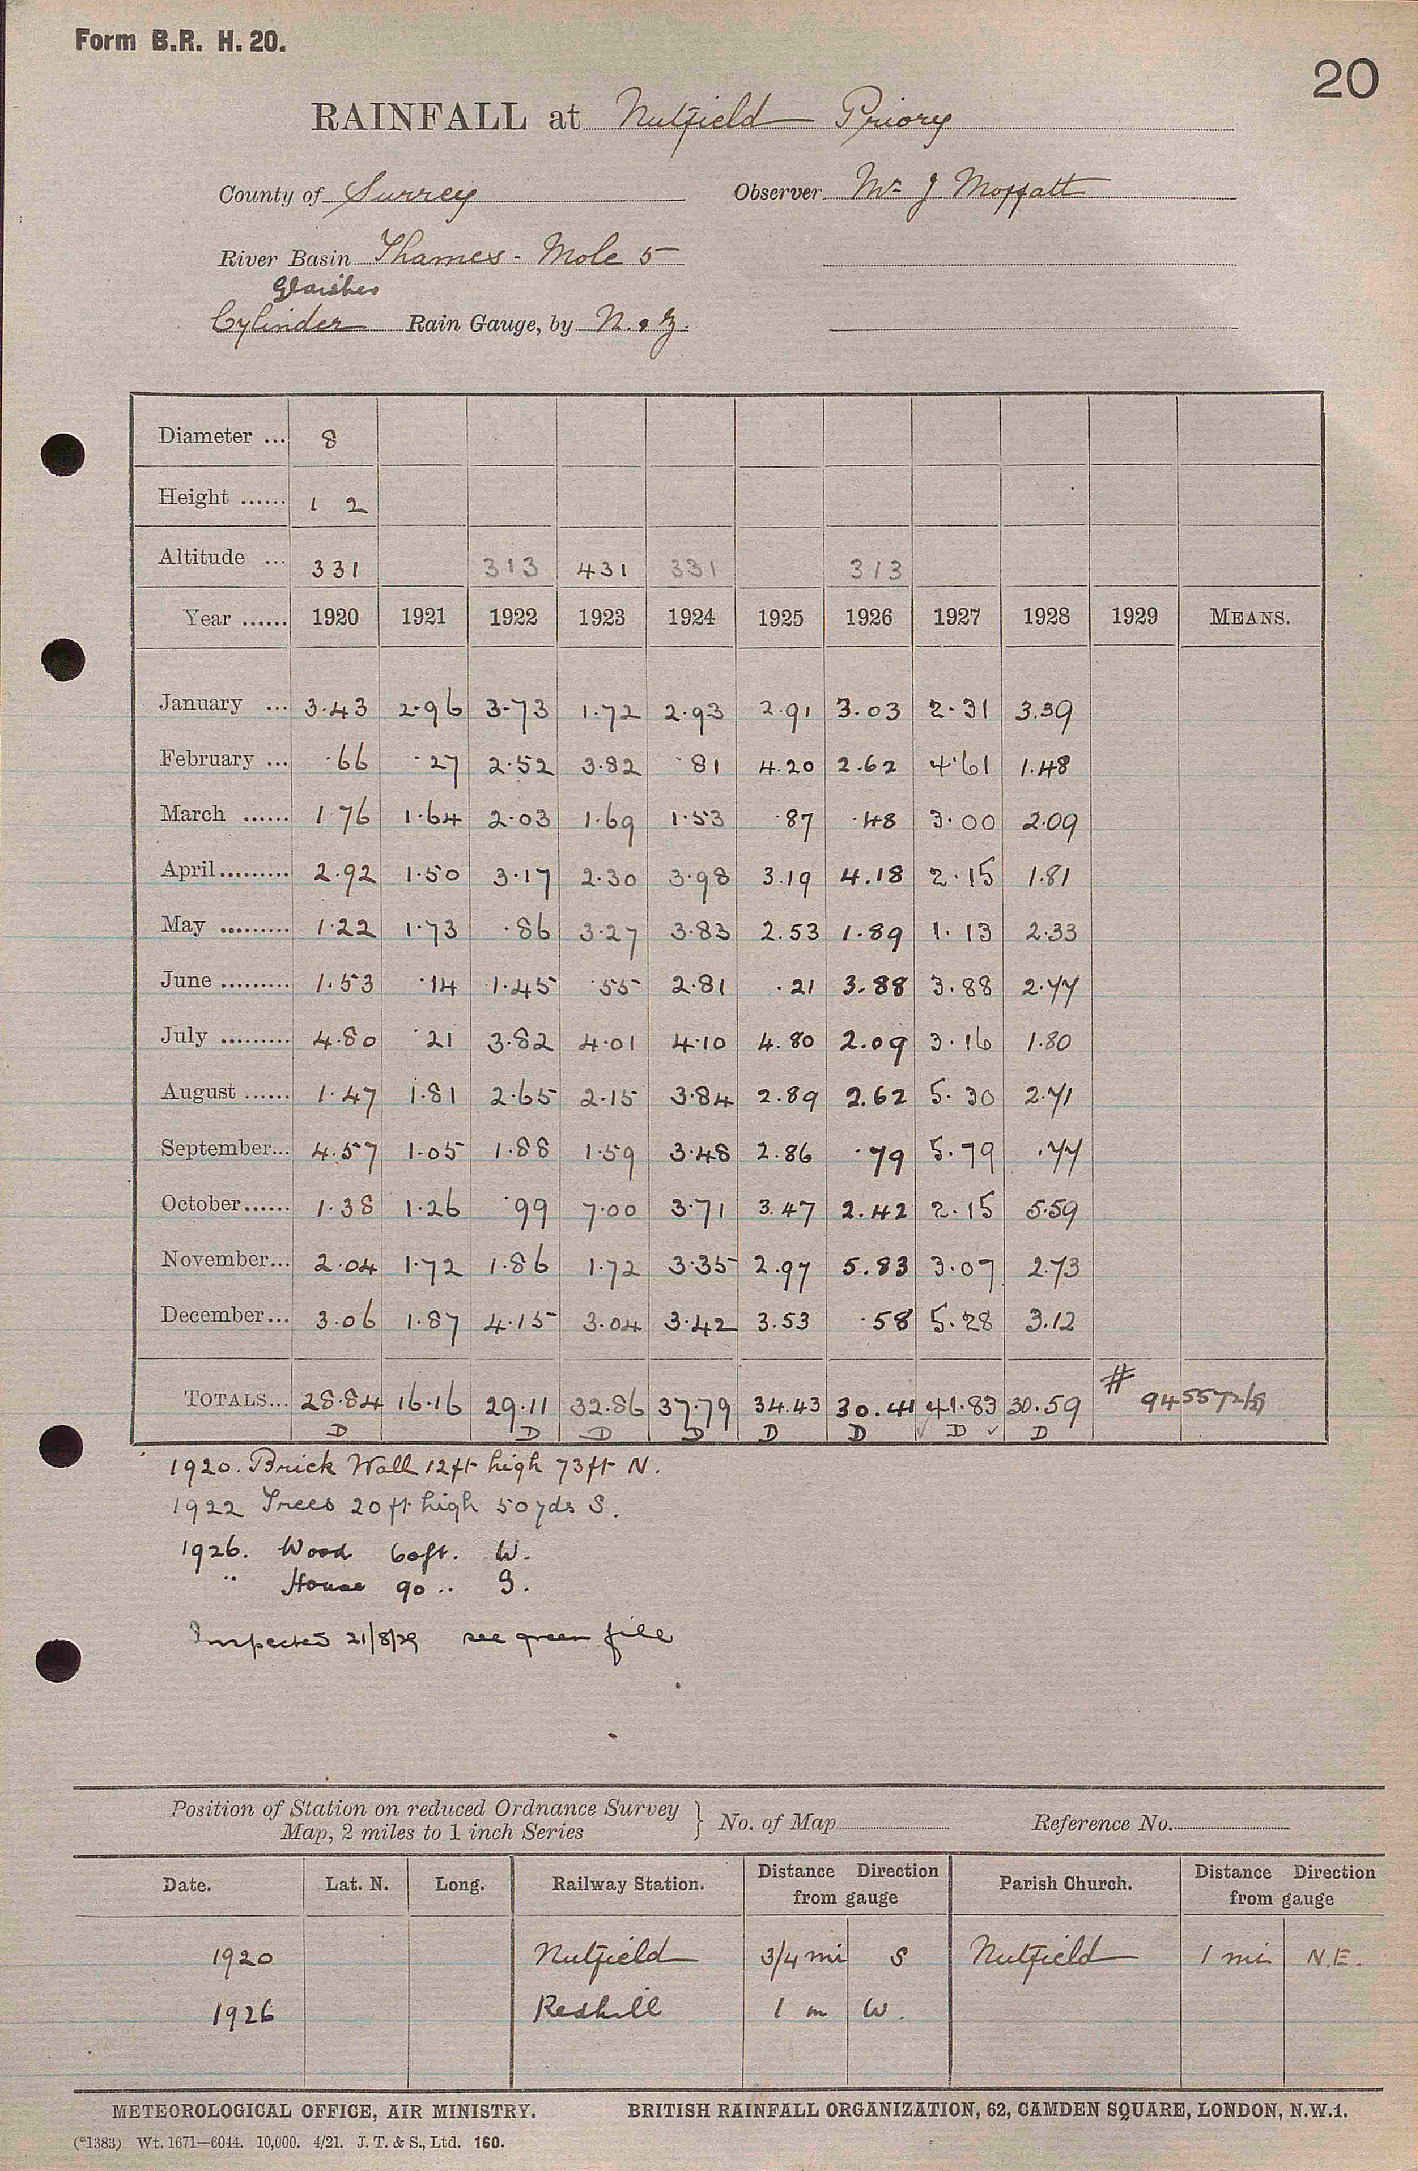 Form B.R. H. 20.
20
RAINFALL at Nutfield Priory
County of Surrey Observer Mr J Moffatt
River Basin Thames - Mole 5
Glaisher
Cylinder Rain Gauge, by N. & Z.
Diameter ... 8
Height ...... 1 2
Altitude ... 331 313 431 331 313
Year ...... 1920 1921 1922 1923 1924 1925 1926 1927 1928 1929 MEANS.
January ... 3.43 2.96 3.73 1.72 2.93 2.91 3.03 2.31 3.39
February ... .66 .27 2.52 3.82 .81 4.20 2.62 4.61 1.48
March ...... 1.76 1.64 2.03 1.69 1.53 .87 .48 3.00 2.09
April......... 2.92 1.50 3.17 2.30 3.98 3.19 4.18 2.15 1.81
May ......... 1.22 1.73 .86 3.27 3.83 2.53 1.89 1.13 2.33
June ......... 1.53 .14 1.45 .55 2.81 .21 3.88 3.88 2.77
July ......... 4.80 .21 3.82 4.01 4.10 4.80 2.09 3.16 1.80
August ...... 1.47 1.81 2.65 2.15 3.84 2.89 2.62 5.30 2.71
September... 4.57 1.05 1.88 1.59 3.48 2.86 .79 5.79 .77
October...... 1.38 1.26 .99 7.00 3.71 3.47 2.42 2.15 5.59
November... 2.04 1.72 1.86 1.72 3.35 2.97 5.83 3.07 2.73
December... 3.06 1.87 4.15 3.04 3.42 3.53 .58 5.28 3.12
TOTALS... 28.84 16.16 29.11 32.86 37.79 34.43 30.41 41.83 30.59 # 945572/29
D D D D D D ✓ D ✓ D
1920. Brick Wall 12ft high 73ft N.
1922 Trees 20ft high 50yds S.
1926. Wood 60ft. W.
" House 90 .. S.
Inspected 21/8/29 see green file
Position of Station on reduced Ordnance Survey
Map, 2 miles to 1 inch Series } No. of Map Reference No.
Date. Lat. N. Long. Railway Station. Distance Direction from gauge Parish Church. Distance Direction from gauge
1920 Nutfield 3/4 mi S Nutfield 1 mi N.E.
1926 Redhill 1 m W.
METEOROLOGICAL OFFICE, AIR MINISTRY. BRITISH RAINFALL ORGANIZATION, 62, CAMDEN SQUARE, LONDON, N.W.1.
(*1383) Wt. 1671—6044. 10,000. 4/21. J. T. & S., Ltd. 160.